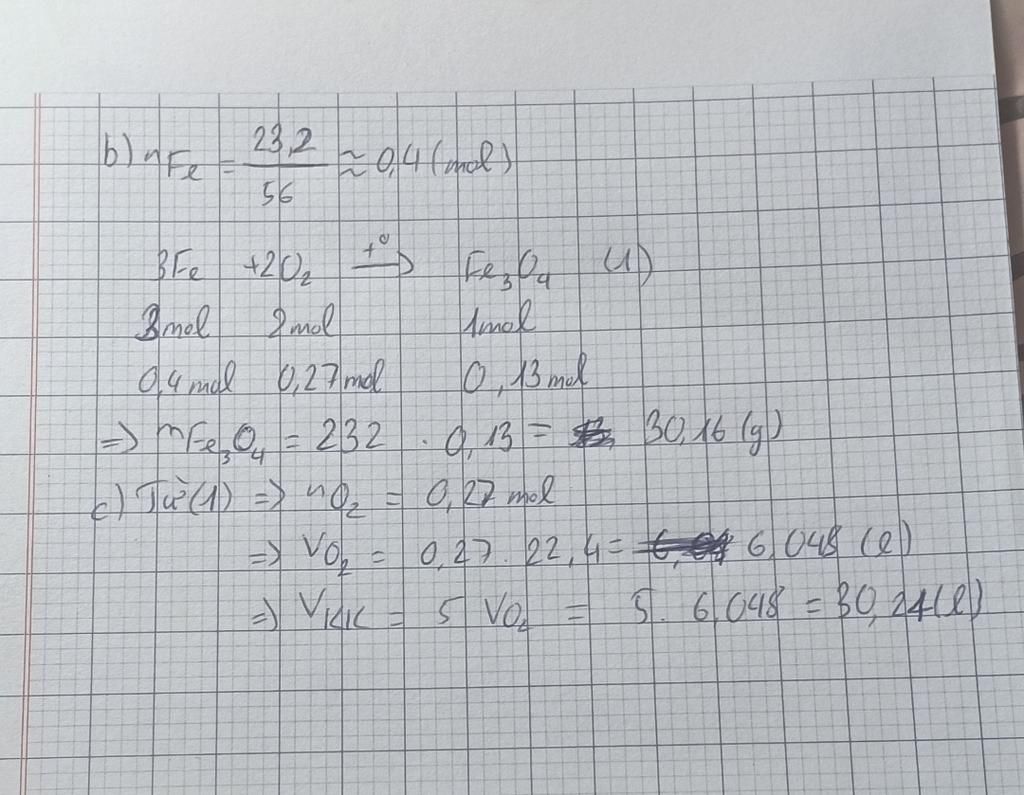 b) nFe = 23,2 / 56 ≈ 0,4 (mol)
3Fe + 2O₂ t° → Fe₃O₄ (1)
3mol 2mol 1mol
0,4mol 0,27mol 0,13mol
=> mFe₃O₄ = 232 . 0,13 = 30,16 (g)
c) Từ (1) => nO₂ = 0,27 mol
=> VO₂ = 0,27 . 22,4 = 6,048 (l)
=> VKK = 5 VO₂ = 5 . 6,048 = 30,24 (l)